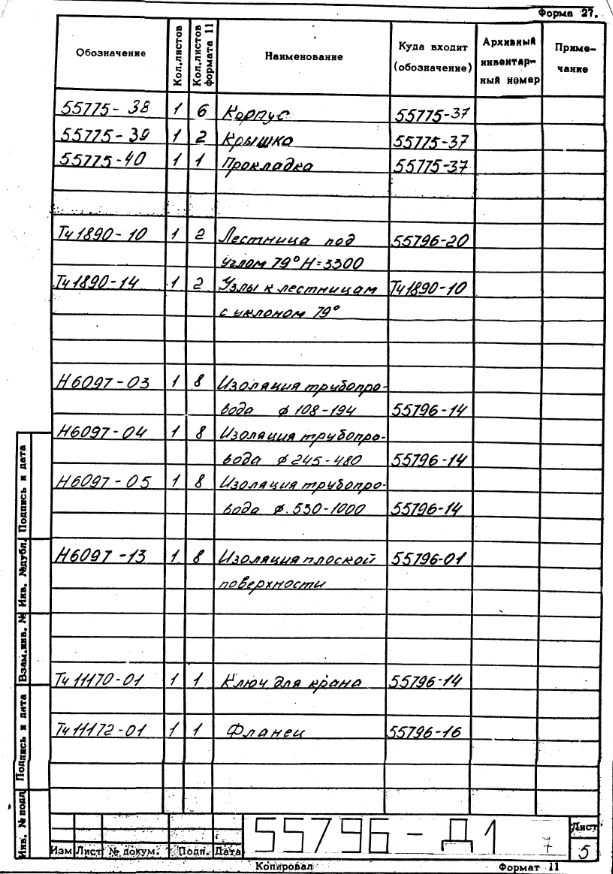 Форма 27.
Обозначение Кол.листов Кол.листов формата 11 Наименование Куда входит (обозначение) Архивный инвентарный номер Примечание
55775-38 1 6 Корпус 55775-37
55775-39 1 2 Крышка 55775-37
55775-40 1 1 Прокладка 55775-37
Тч1890-10 1 2 Лестница под 55796-20
углом 79° Н=3300
Тч1890-14 1 2 Узлы к лестницам Тч1890-10
с уклоном 79°
Н6097-03 1 8 Изоляция трубопро-
вода ф 108-194 55796-14
Н6097-04 1 8 Изоляция трубопро-
вода ф 245-480 55796-14
Н6097-05 1 8 Изоляция трубопро-
вода ф. 530-1000 55796-14
Н6097-13 1 8 Изоляция плоской 55796-01
поверхности
Тч11170-01 1 1 Ключ для крана 55796-14
Тч11172-01 1 1 Фланец 55796-16
Инв. № подл Подпись и дата Взам.инв. № Инв. №дубл. Подпись и дата
Изм Лист № докум. Подп. Дата
55796-Д1 7
Лист
5
Копировал Формат 11